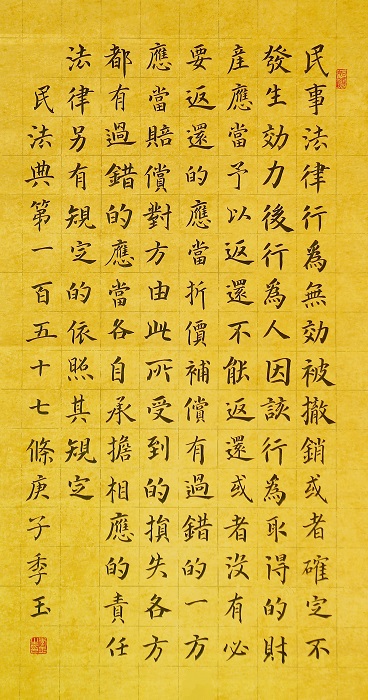 民事法律行為無効被撤銷或者確定不
發生効力後行為人因該行為取得的財
産應當予以返還不能返還或者没有必
要返還的應當折價補償有過錯的一方
應當賠償對方由此所受到的損失各方
都有過錯的應當各自承擔相應的責任
法律另有規定的依照其規定
民法典第一百五十七條庚子季玉